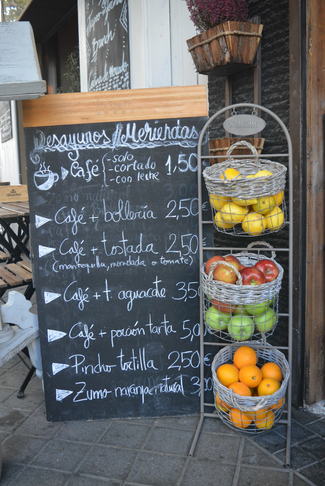 Desayunos & Meriendas
Café -solo 1,50
-cortado
-con leche
Café + bollería 2,50
Café + tostada 2,50
(mantequilla, mermelada o tomate)
Café + t. aguacate 3,5
Café + porción tarta 5,
Pincho tortilla 2,50
Zumo naranja natural 3,